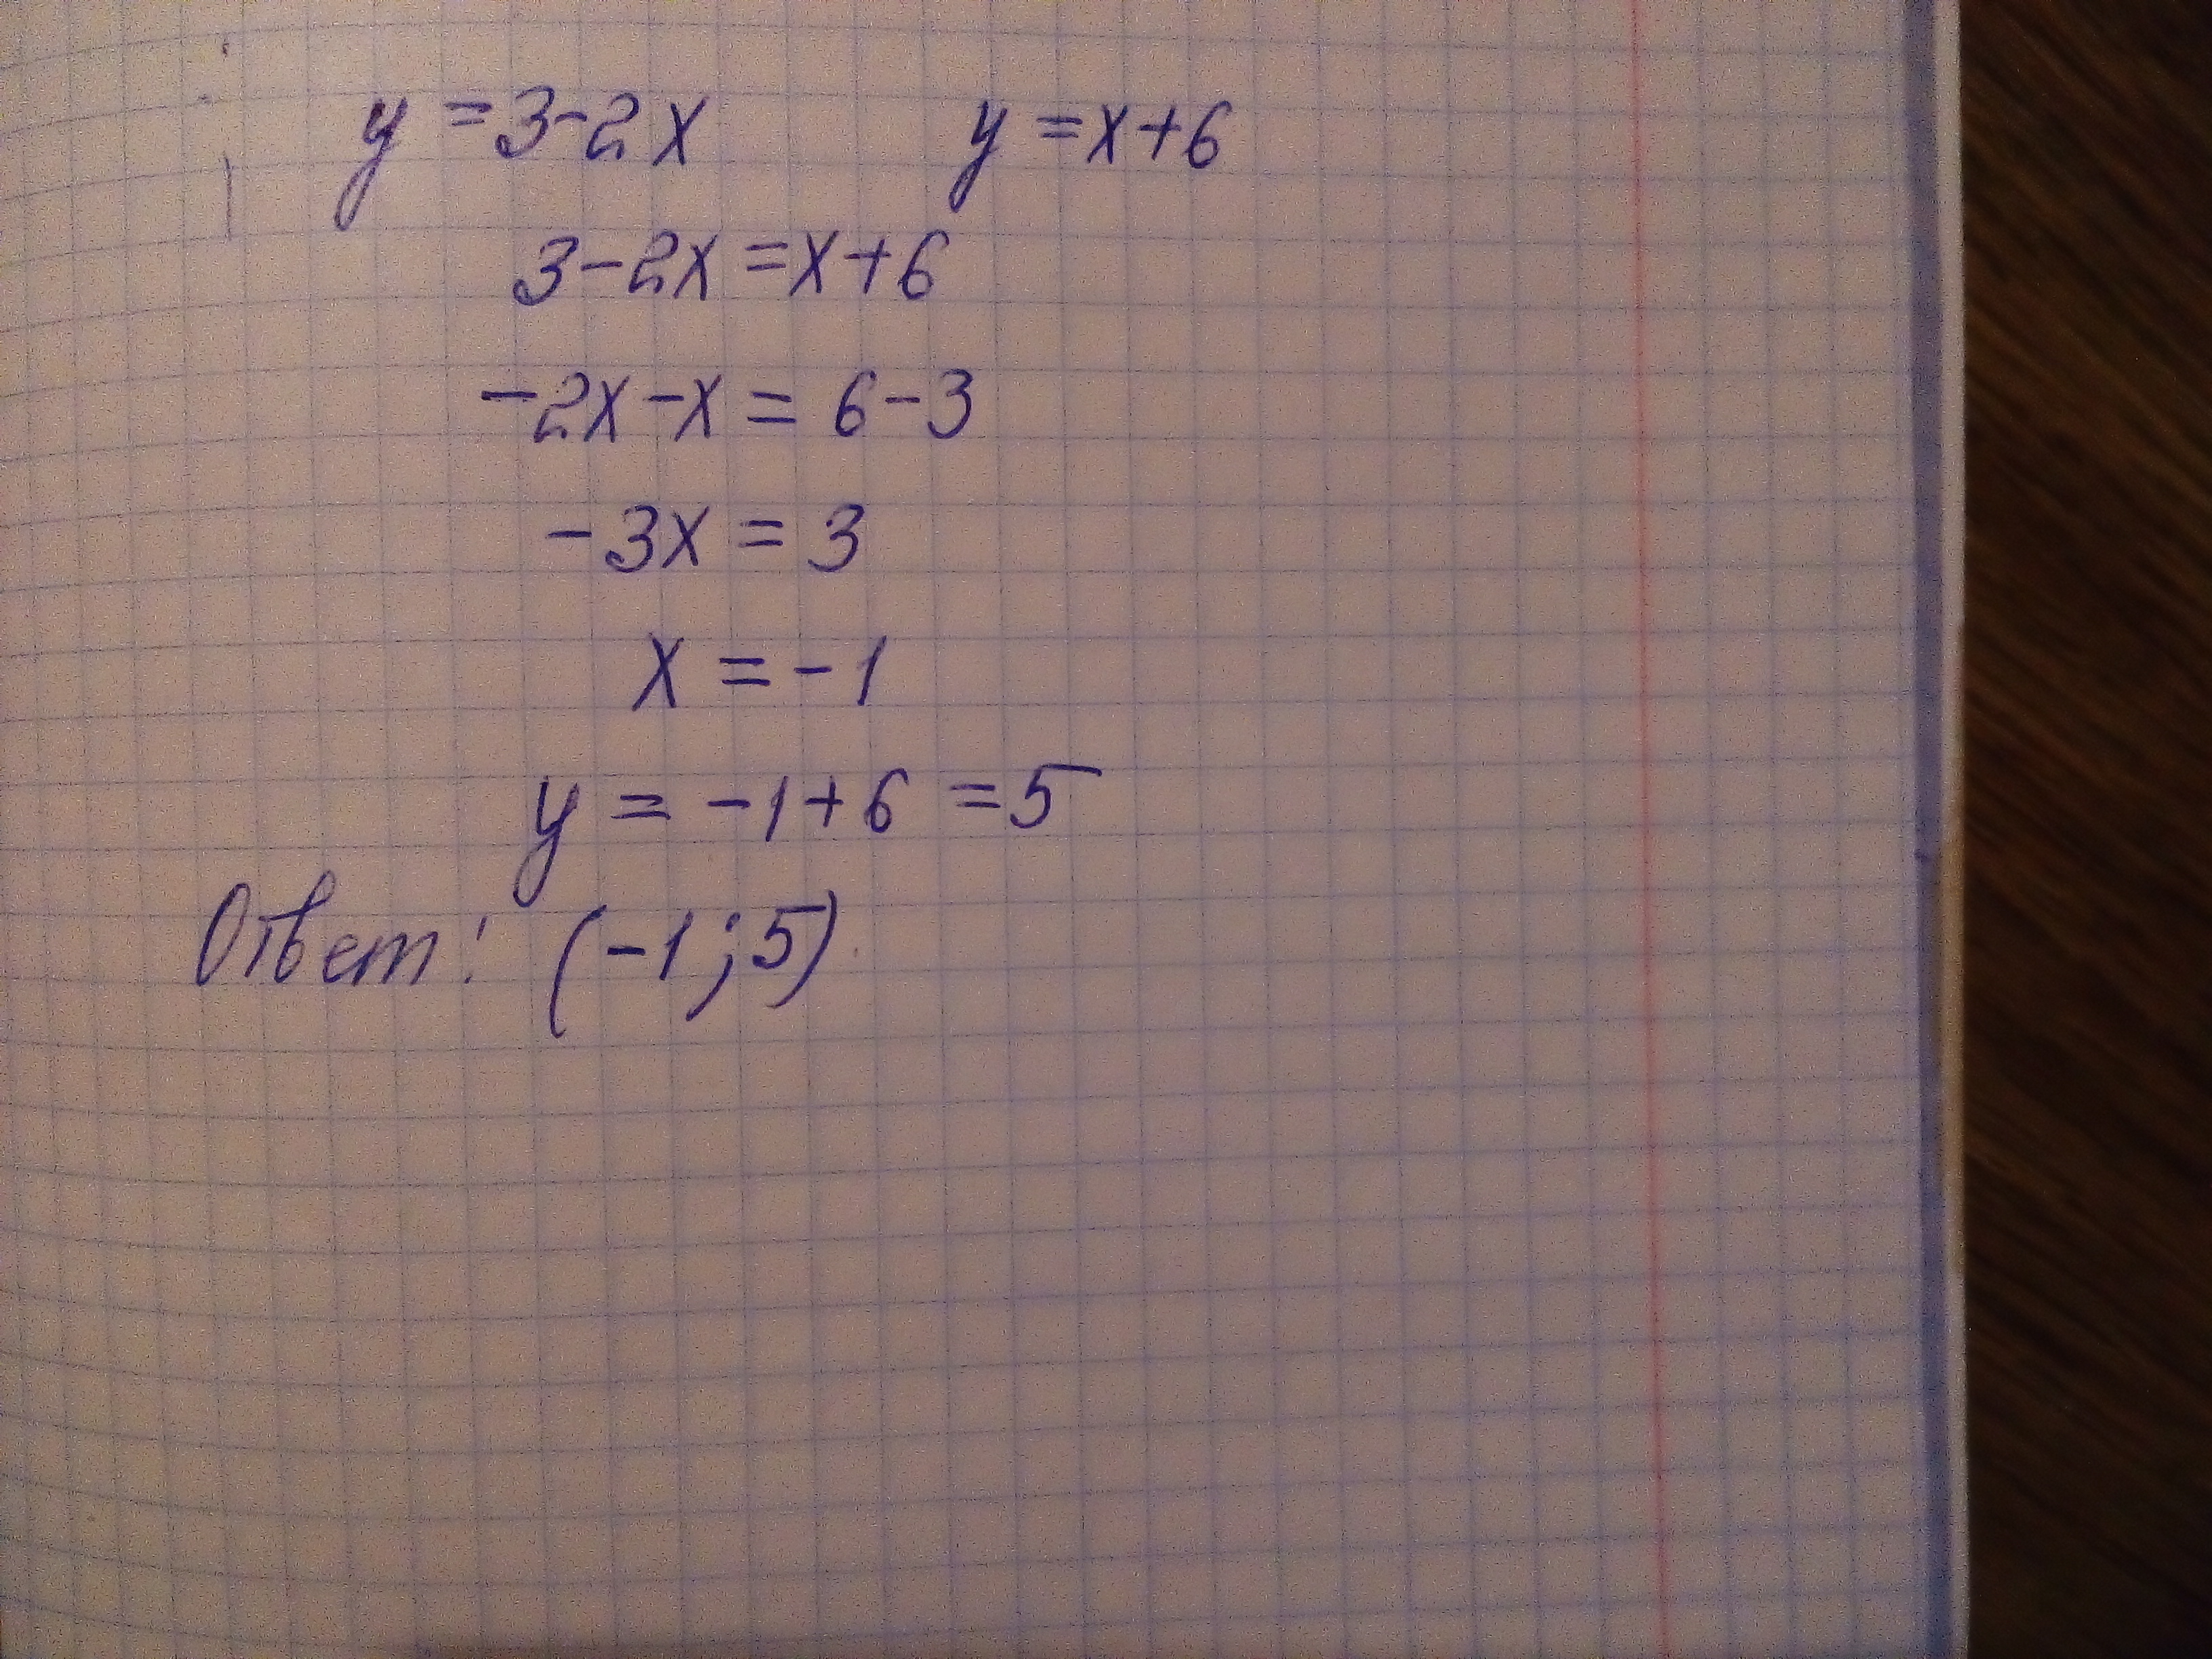 y = 3 - 2x y = x + 6
3 - 2x = x + 6
-2x - x = 6 - 3
-3x = 3
x = -1
y = -1 + 6 = 5
Ответ: (-1; 5)